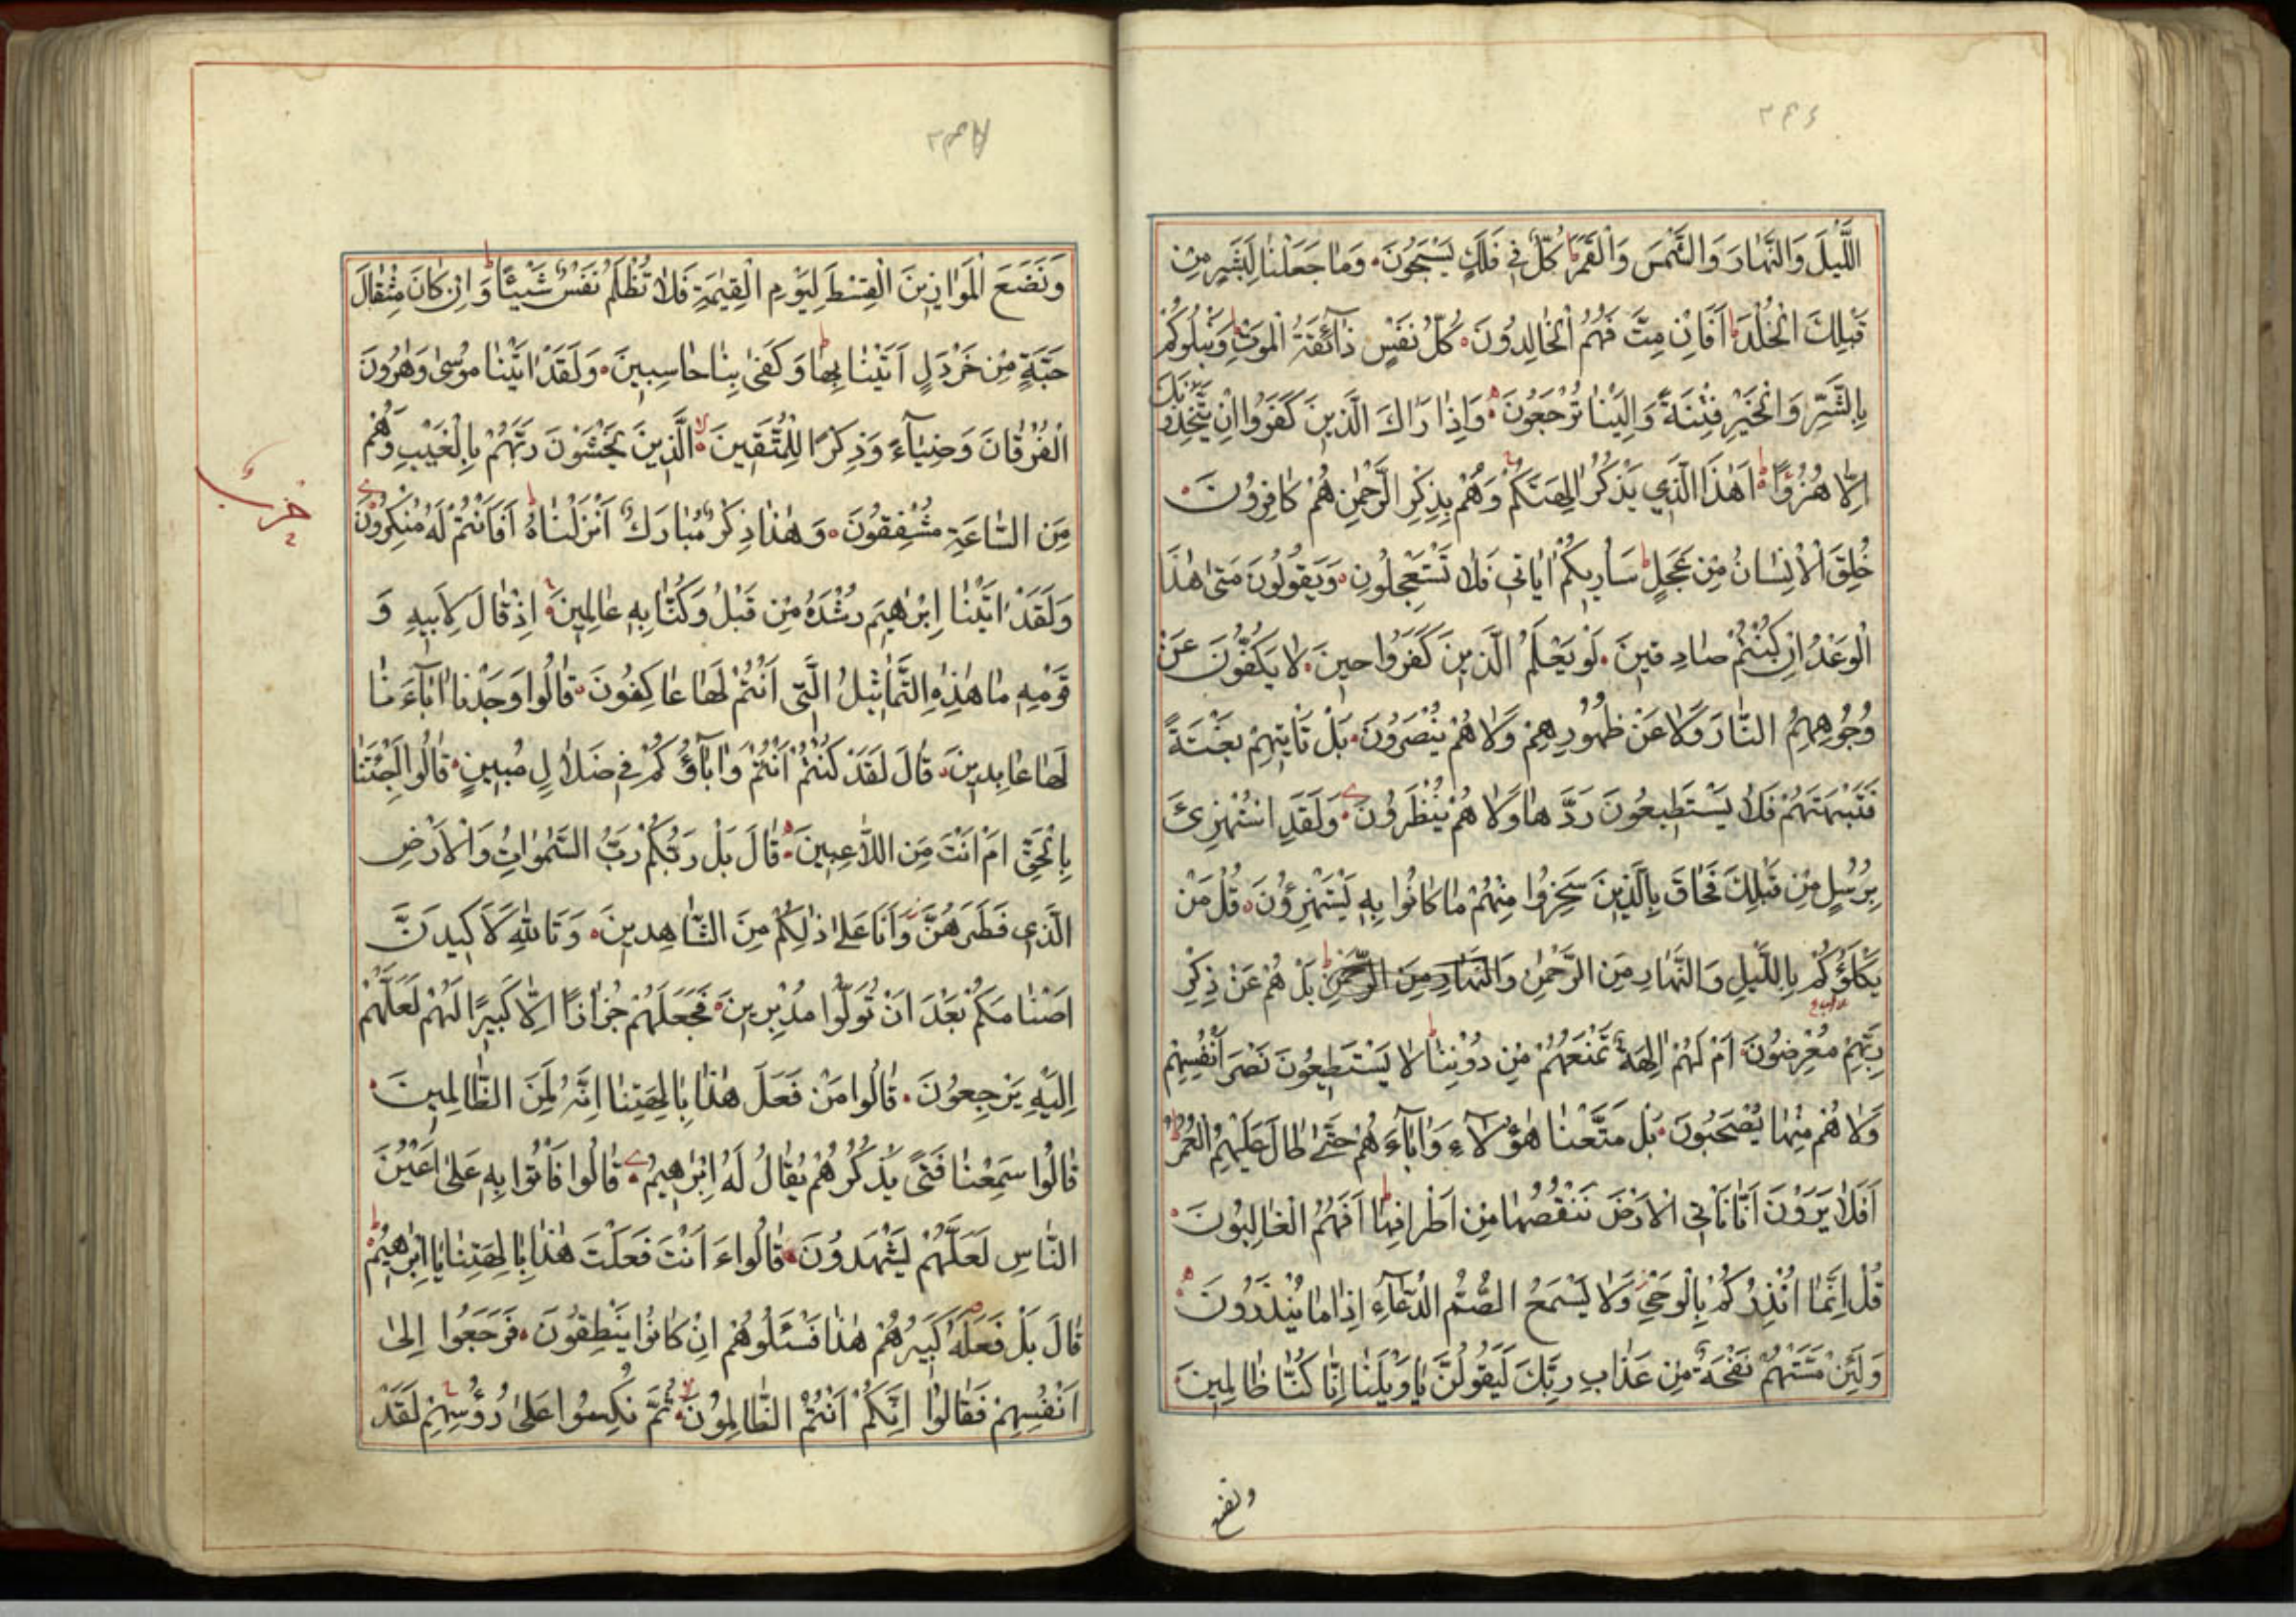 اللَّيْلَ وَالنَّهَارَ وَالشَّمْسَ وَالْقَمَرَ كُلٌّ فِي فَلَكٍ يَسْبَحُونَ وَمَا جَعَلْنَا لِبَشَرٍ مِنْ
قَبْلِكَ الْخُلْدَ اَفَاِنْ مِتَّ فَهُمُ الْخَالِدُونَ كُلُّ نَفْسٍ ذَآئِقَةُ الْمَوْتِ وَنَبْلُوكُمْ
بِالشَّرِّ وَالْخَيْرِ فِتْنَةً وَاِلَيْنَا تُرْجَعُونَ وَاِذَا رَاٰكَ الَّذِينَ كَفَرُوا اِنْ يَتَّخِذُونَكَ
اِلَّا هُزُوًا اَهٰذَا الَّذِي يَذْكُرُ اٰلِهَتَكُمْ وَهُمْ بِذِكْرِ الرَّحْمٰنِ هُمْ كَافِرُونَ
خُلِقَ الْاِنْسَانُ مِنْ عَجَلٍ سَاُرِيكُمْ اٰيَاتِي فَلَا تَسْتَعْجِلُونِ وَيَقُولُونَ مَتٰى هٰذَا
الْوَعْدُ اِنْ كُنْتُمْ صَادِقِينَ لَوْ يَعْلَمُ الَّذِينَ كَفَرُوا حِينَ لَا يَكُفُّونَ عَنْ
وُجُوهِهِمُ النَّارَ وَلَا عَنْ ظُهُورِهِمْ وَلَا هُمْ يُنْصَرُونَ بَلْ تَأْتِيهِمْ بَغْتَةً
فَتَبْهَتُهُمْ فَلَا يَسْتَطِيعُونَ رَدَّهَا وَلَا هُمْ يُنْظَرُونَ وَلَقَدِ اسْتُهْزِئَ
بِرُسُلٍ مِنْ قَبْلِكَ فَحَاقَ بِالَّذِينَ سَخِرُوا مِنْهُمْ مَا كَانُوا بِهِ يَسْتَهْزِؤُنَ قُلْ مَنْ
يَكْلَؤُكُمْ بِاللَّيْلِ وَالنَّهَارِ مِنَ الرَّحْمٰنِ وَالنَّهَارِ مِنَ الرَّحْمٰنِ بَلْ هُمْ عَنْ ذِكْرِ
رَبِّهِمْ مُعْرِضُونَ اَمْ لَهُمْ اٰلِهَةٌ تَمْنَعُهُمْ مِنْ دُونِنَا لَا يَسْتَطِيعُونَ نَصْرَ اَنْفُسِهِمْ
وَلَا هُمْ مِنَّا يُصْحَبُونَ بَلْ مَتَّعْنَا هٰؤُلَاءِ وَاٰبَآءَهُمْ حَتّٰى طَالَ عَلَيْهِمُ الْعُمُرُ
اَفَلَا يَرَوْنَ اَنَّا نَأْتِي الْاَرْضَ نَنْقُصُهَا مِنْ اَطْرَافِهَا اَفَهُمُ الْغَالِبُونَ
قُلْ اِنَّمَا اُنْذِرُكُمْ بِالْوَحْيِ وَلَا يَسْمَعُ الصُّمُّ الدُّعَآءَ اِذَا مَا يُنْذَرُونَ
وَلَئِنْ مَسَّتْهُمْ نَفْحَةٌ مِنْ عَذَابِ رَبِّكَ لَيَقُولُنَّ يَا وَيْلَنَا اِنَّا كُنَّا ظَالِمِينَ
ونضع
وَنَضَعُ الْمَوَازِينَ الْقِسْطَ لِيَوْمِ الْقِيٰمَةِ فَلَا تُظْلَمُ نَفْسٌ شَيْئًا وَاِنْ كَانَ مِثْقَالَ
حَبَّةٍ مِنْ خَرْدَلٍ اَتَيْنَا بِهَا وَكَفٰى بِنَا حَاسِبِينَ وَلَقَدْ اٰتَيْنَا مُوسٰى وَهٰرُونَ
الْفُرْقَانَ وَضِيَآءً وَذِكْرًا لِلْمُتَّقِينَ الَّذِينَ يَخْشَوْنَ رَبَّهُمْ بِالْغَيْبِ وَهُمْ
مِنَ السَّاعَةِ مُشْفِقُونَ وَهٰذَا ذِكْرٌ مُبَارَكٌ اَنْزَلْنَاهُ اَفَاَنْتُمْ لَهُ مُنْكِرُونَ
حزب
وَلَقَدْ اٰتَيْنَا اِبْرٰهِيمَ رُشْدَهُ مِنْ قَبْلُ وَكُنَّا بِهِ عَالِمِينَ اِذْ قَالَ لِاَبِيهِ وَ
قَوْمِهِ مَا هٰذِهِ التَّمَاثِيلُ الَّتِي اَنْتُمْ لَهَا عَاكِفُونَ قَالُوا وَجَدْنَا اٰبَآءَنَا
لَهَا عَابِدِينَ قَالَ لَقَدْ كُنْتُمْ اَنْتُمْ وَاٰبَآؤُكُمْ فِي ضَلَالٍ مُبِينٍ قَالُوا اَجِئْتَنَا
بِالْحَقِّ اَمْ اَنْتَ مِنَ اللَّاعِبِينَ قَالَ بَلْ رَبُّكُمْ رَبُّ السَّمٰوَاتِ وَالْاَرْضِ
الَّذِي فَطَرَهُنَّ وَاَنَا عَلٰى ذٰلِكُمْ مِنَ الشَّاهِدِينَ وَتَاللّٰهِ لَاَكِيدَنَّ
اَصْنَامَكُمْ بَعْدَ اَنْ تُوَلُّوا مُدْبِرِينَ فَجَعَلَهُمْ جُذَاذًا اِلَّا كَبِيرًا لَهُمْ لَعَلَّهُمْ
اِلَيْهِ يَرْجِعُونَ قَالُوا مَنْ فَعَلَ هٰذَا بِاٰلِهَتِنَا اِنَّهُ لَمِنَ الظَّالِمِينَ
قَالُوا سَمِعْنَا فَتًى يَذْكُرُهُمْ يُقَالُ لَهُ اِبْرٰهِيمُ قَالُوا فَأْتُوا بِهِ عَلٰى اَعْيُنِ
النَّاسِ لَعَلَّهُمْ يَشْهَدُونَ قَالُوا ءَاَنْتَ فَعَلْتَ هٰذَا بِاٰلِهَتِنَا يَا اِبْرٰهِيمُ
قَالَ بَلْ فَعَلَهُ كَبِيرُهُمْ هٰذَا فَسْئَلُوهُمْ اِنْ كَانُوا يَنْطِقُونَ فَرَجَعُوا اِلٰى
اَنْفُسِهِمْ فَقَالُوا اِنَّكُمْ اَنْتُمُ الظَّالِمُونَ ثُمَّ نُكِسُوا عَلٰى رُؤُسِهِمْ لَقَدْ